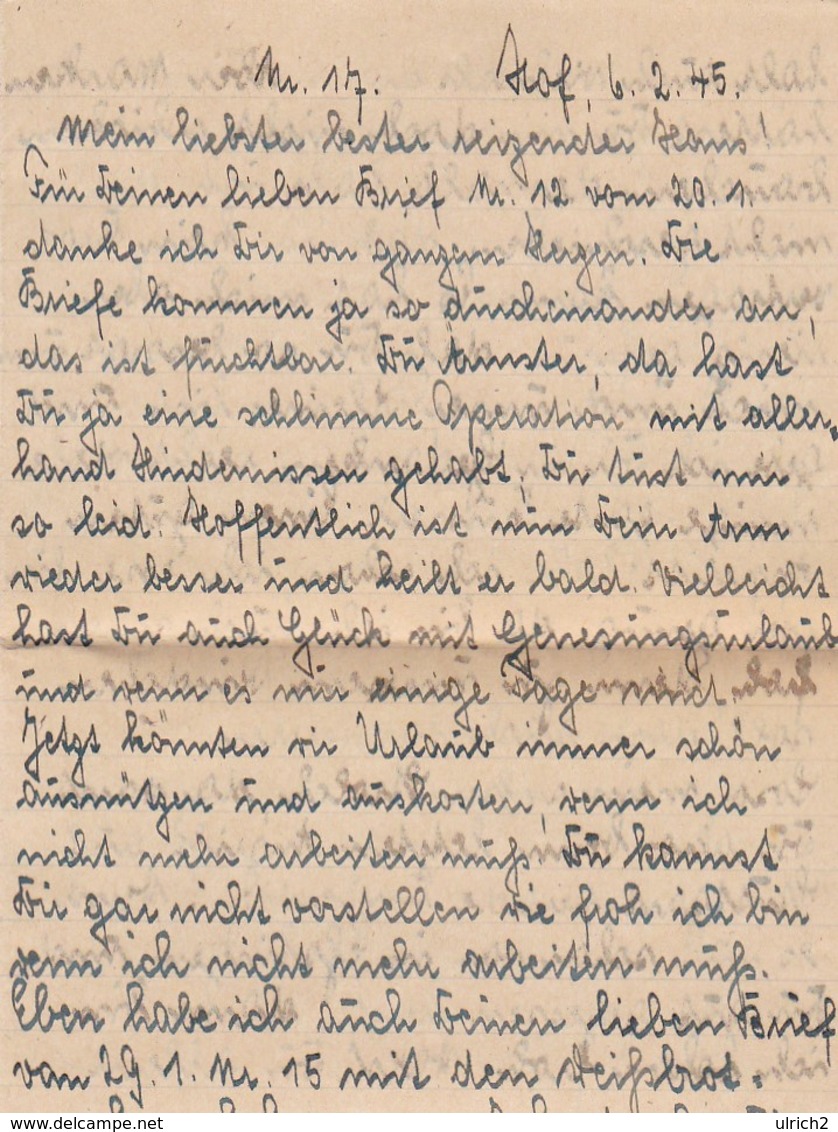 Nr. 17. Hof, 6. 2. 45.
Mein liebster bester reizender Hans!
Für Deinen lieben Brief Nr. 12 vom 20. 1.
danke ich Dir von ganzem Herzen. Die
Briefe kommen ja so durcheinander an,
das ist furchtbar. Du Ärmster, da hast
Du ja eine schlimme Operation mit aller-
hand Hindernissen gehabt, Du tust mir
so leid. Hoffentlich ist nun Dein Arm
wieder besser und heilt er bald. Vielleicht
hast Du auch Glück mit Genesungsurlaub
und wenn es nur einige Tage sind.
Jetzt könnten wir Urlaub immer schön
ausnützen und auskosten, wenn ich
nicht mehr arbeiten muß. Du kannst
Dir gar nicht vorstellen wie froh ich bin
wenn ich nicht mehr arbeiten muß.
Eben habe ich auch Deinen lieben Brief
vom 29. 1. Nr. 15 mit den Weißbrot-
© delcampe.net
ulrich2